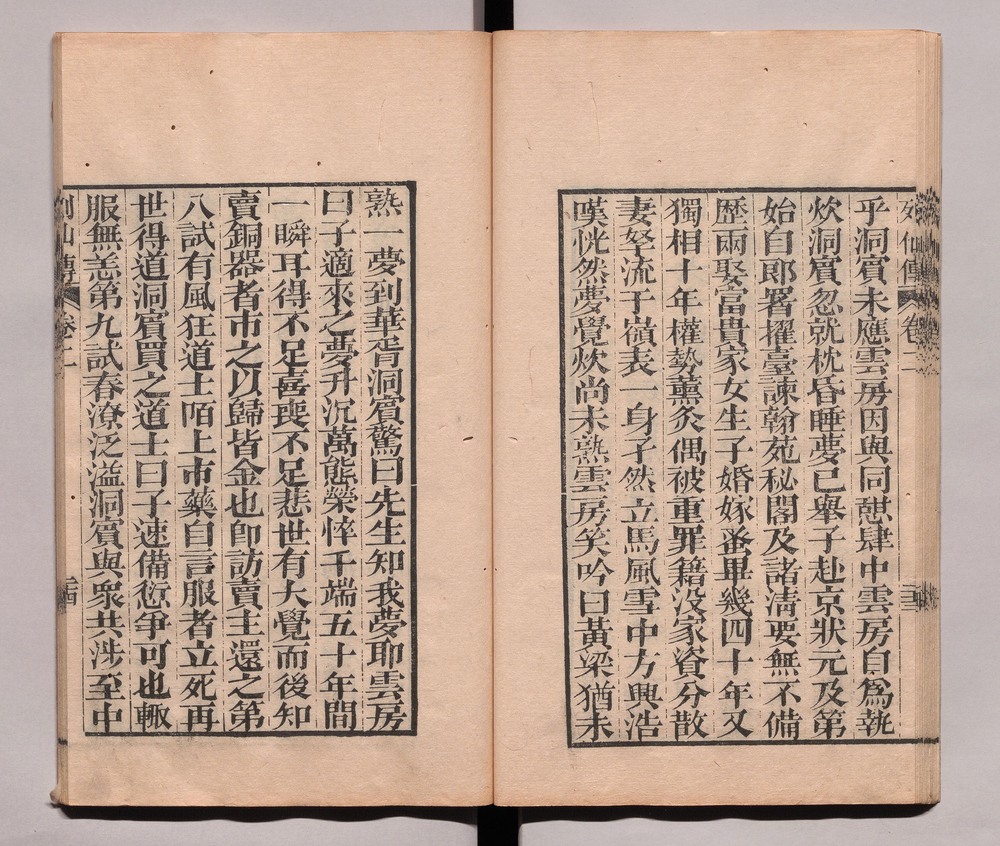 列仙傳 卷二
乎洞賓未應雲房因與同憇肆中雲房自爲執
炊洞賓忽就枕昏睡夢已舉子赴京狀元及第
始自郎署擢臺諫翰苑秘閣及諸淸要無不備
歷兩娶富貴家女生子婚嫁蚤畢幾四十年又
獨相十年權勢薰灸偶被重罪籍没家資分散
妻孥流于嶺表一身孑然立馬風雪中方興浩
嘆恍然夢覺炊尚未熟雲房笑吟曰黃粱猶未
熟一夢到華胥洞賓驚曰先生知我夢耶雲房
曰子適來之夢升沉萬態榮悴千端五十年間
一瞬耳得不足喜喪不足悲世有大覺而後知
賣銅器者市之以歸皆金也卽訪賣主還之第
八試有風狂道士陌上市藥自言服者立死再
世得道洞賓買之道士曰子速備後爭可也輙
服無恙第九試春潦泛溢洞賓與衆共涉至中
列仙傳 卷二 二四